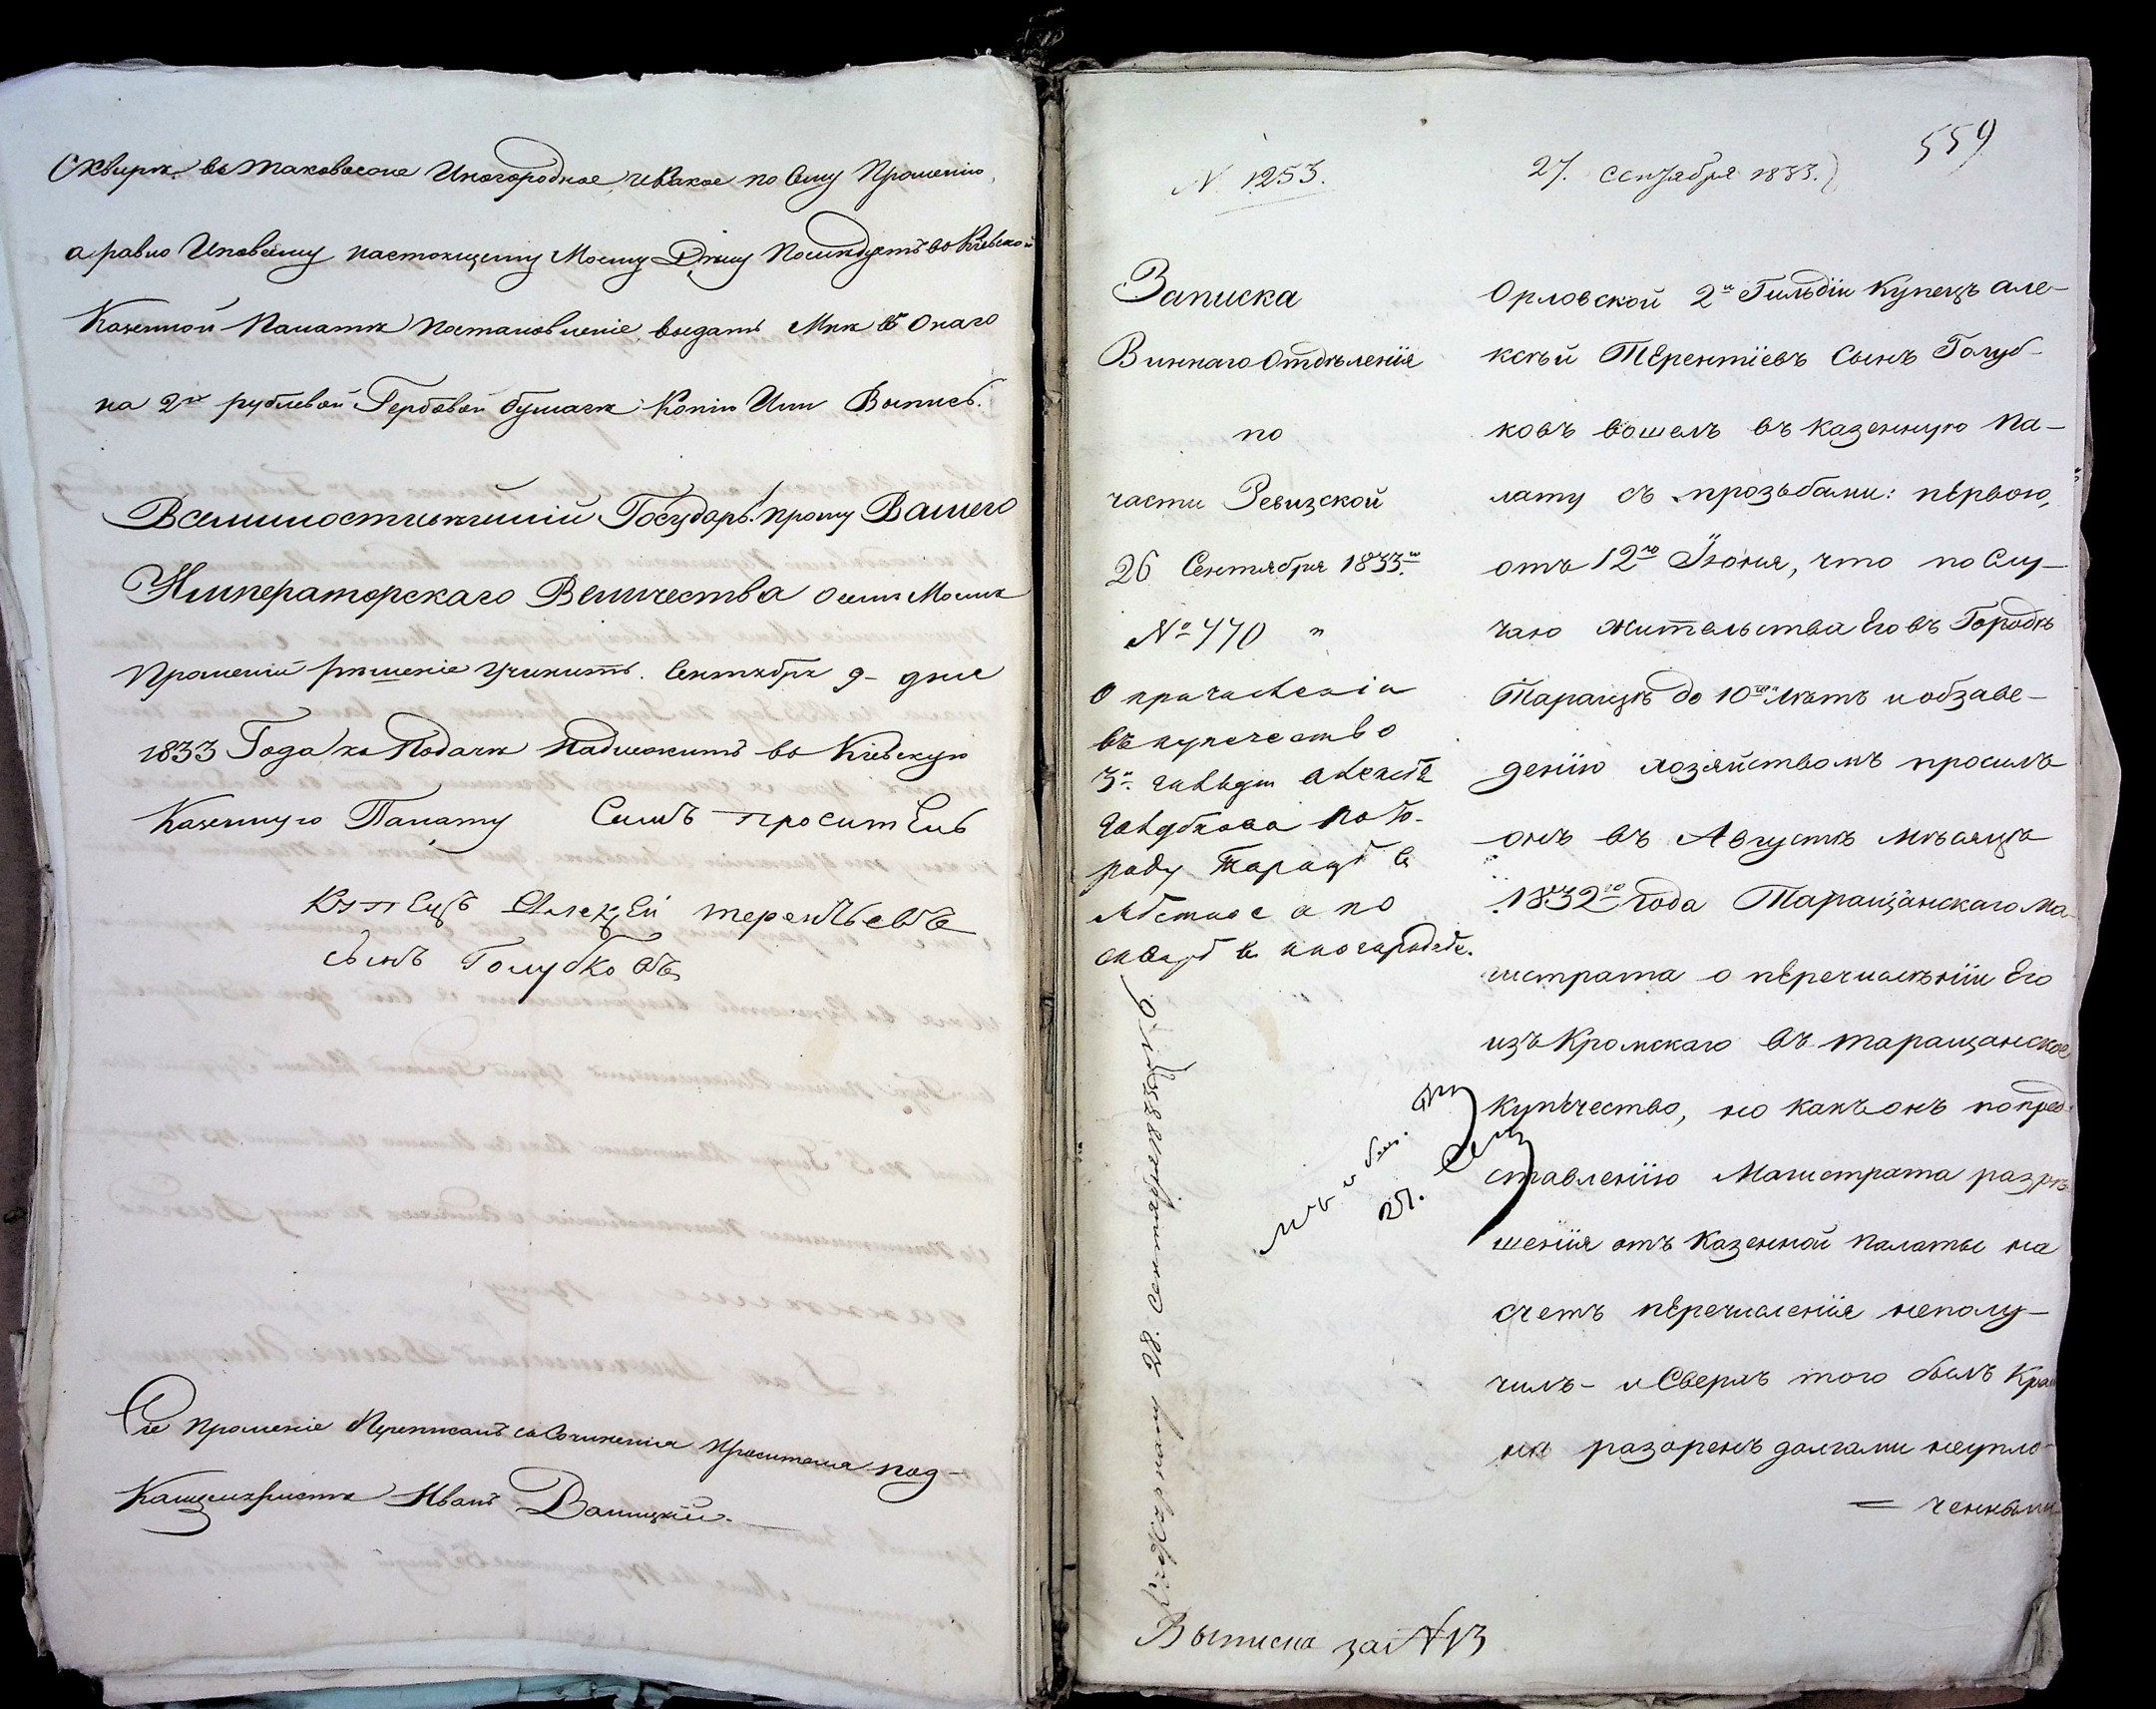 Сквирѣ въ таковоеже Иногородное, и какое по Сему Прошенію,
а равно Иповсему настоящему Моему Дѣлу Послѣдуетъ во Кіевской
Казенной Палатѣ Постановленіе, выдать Мнѣ съ Онаго
на 2хъ рублевой Гербовой бумагѣ Копію Или Выпись.
Всемилостивѣйшій Государь! прошу Вашего
Императорскаго Величества о семъ Моемъ
Прошеніи рѣшеніе Учинить. Сентября 9- дня
1833 Года, къ Подачѣ Надлежитъ во Кіевскую
Казенную Палату Симъ проситель
Купецъ Алексей терентьевъ
сынъ Голубковъ
Сіе Прошеніе Переписалъ съ Сочиненія Просителя под-
Канцеляристъ Иванъ
559
N 1253.
27. сентября 1833.
Записка
Виннаго Отдѣленія
по
части Ревизской
26 Сентября 1833го
№ 770 "
О причисленіи
въ купечество
3й гильдіи Алексея
Голубкова по го-
роду Таращѣ въ
мѣстное а по
сквирѣ въ иногородное.
28. Сентября 1833
27. Сен
Выписка за N 13
Орловской 2й Гильдіи Купецъ Але-
ксѣй Терентіевъ Сынъ Голуб-
ковъ вошелъ въ казенную Па-
лату съ прозьбами: первою,
отъ 12го Іюня, что по Слу-
чаю жительства Его въ Городѣ
Таращѣ до 10ти Лѣтъ и обзаве-
денію хозяйствомъ просилъ
онъ въ Августѣ мѣсяцѣ
1832го Года Таращанскаго Ма-
гистрата о перечисленіи Его
изъ Кромскаго въ таращанское
купѣчество, но какъ онъ по пред-
ставленію Магистрата разрѣ-
шенія отъ Казенной Палаты на
счетъ перечисленія неполу-
чилъ- и Сверхъ того былъ Край
нѣ разоренъ долгами неупло-
= ченными